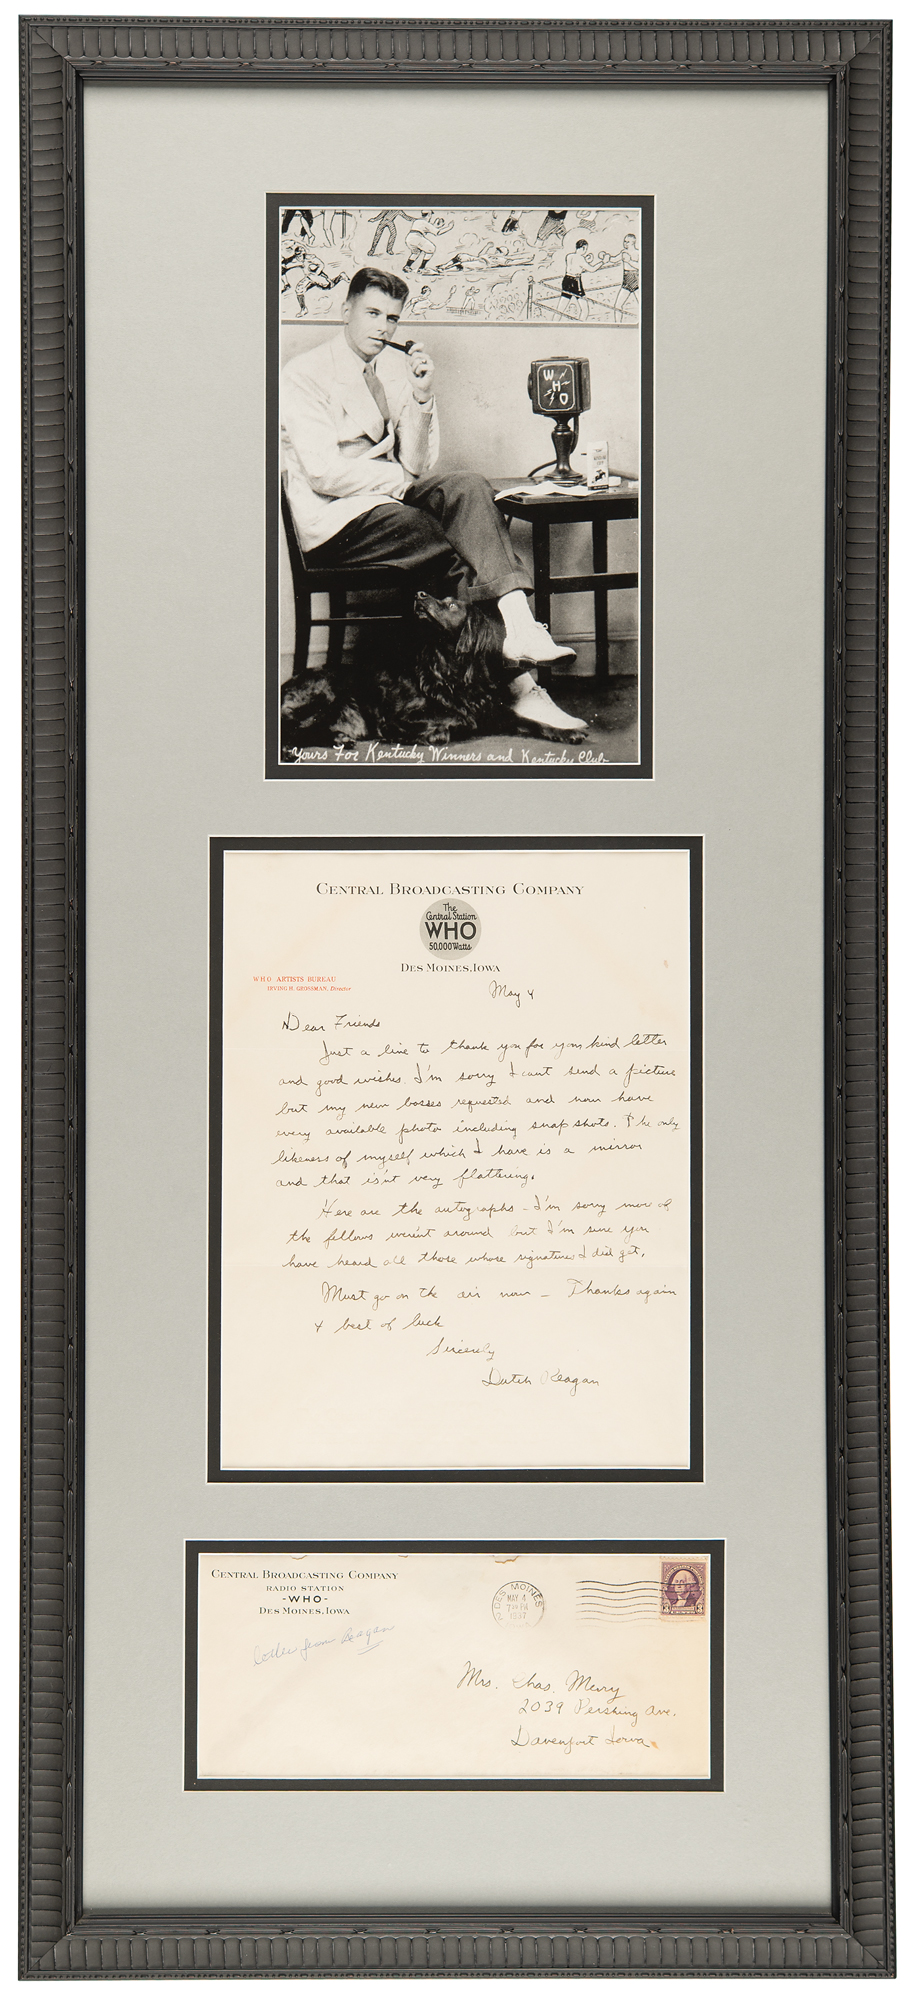 W
H
O
Yours For Kentucky Winners and Kentucky Club
CENTRAL BROADCASTING COMPANY
The
Central Station
WHO
50,000 Watts
DES MOINES, IOWA
WHO ARTISTS BUREAU
IRVING H. GROSSMAN, Director
May 4
Dear Friends
Just a line to thank you for your kind letter
and good wishes. I'm sorry I cant send a picture
but my new bosses requested and now have
every available photo including snap shots. The only
likeness of myself which I have is a mirror
and that isn't very flattering.
Here are the autographs - I'm sorry more of
the fellows weren't around but I'm sure you
have heard all those whose signatures I did get.
Must go on the air now - Thanks again
& best of luck
Sincerely
Dutch Reagan
CENTRAL BROADCASTING COMPANY
RADIO STATION
-WHO-
DES MOINES, IOWA
DES MOINES
MAY 4
7 PM
1937
letter from Reagan
3 3
Mrs. Chas. Merry
2039 Pershing Ave.
Davenport Iowa